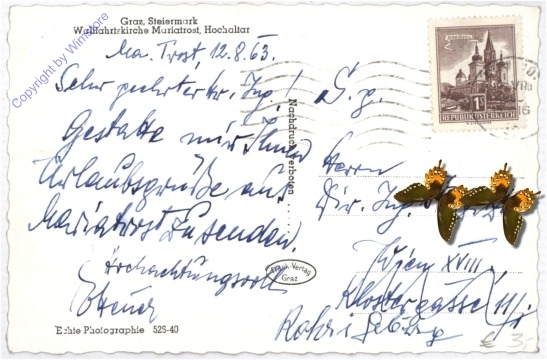 Graz, Steiermark
Wallfahrtskirche Mariatrost, Hochaltar
Ma. Trost, 12.8.63.
Sehr geehrter Hr. Ing.!
Gestatte mir Ihnen
Urlaubsgrüße aus
Mariatrost zusenden.
Hochachtungsvoll
Echte Photographie 528-40
Nachdruck verboten
Frank-Verlag
Graz
S. g.
Herrn
Dir. Ing.
Wien XVIII.
Klostergasse 11/
REPUBLIK ÖSTERREICH
1S
€ 35
Copyright by Winstore